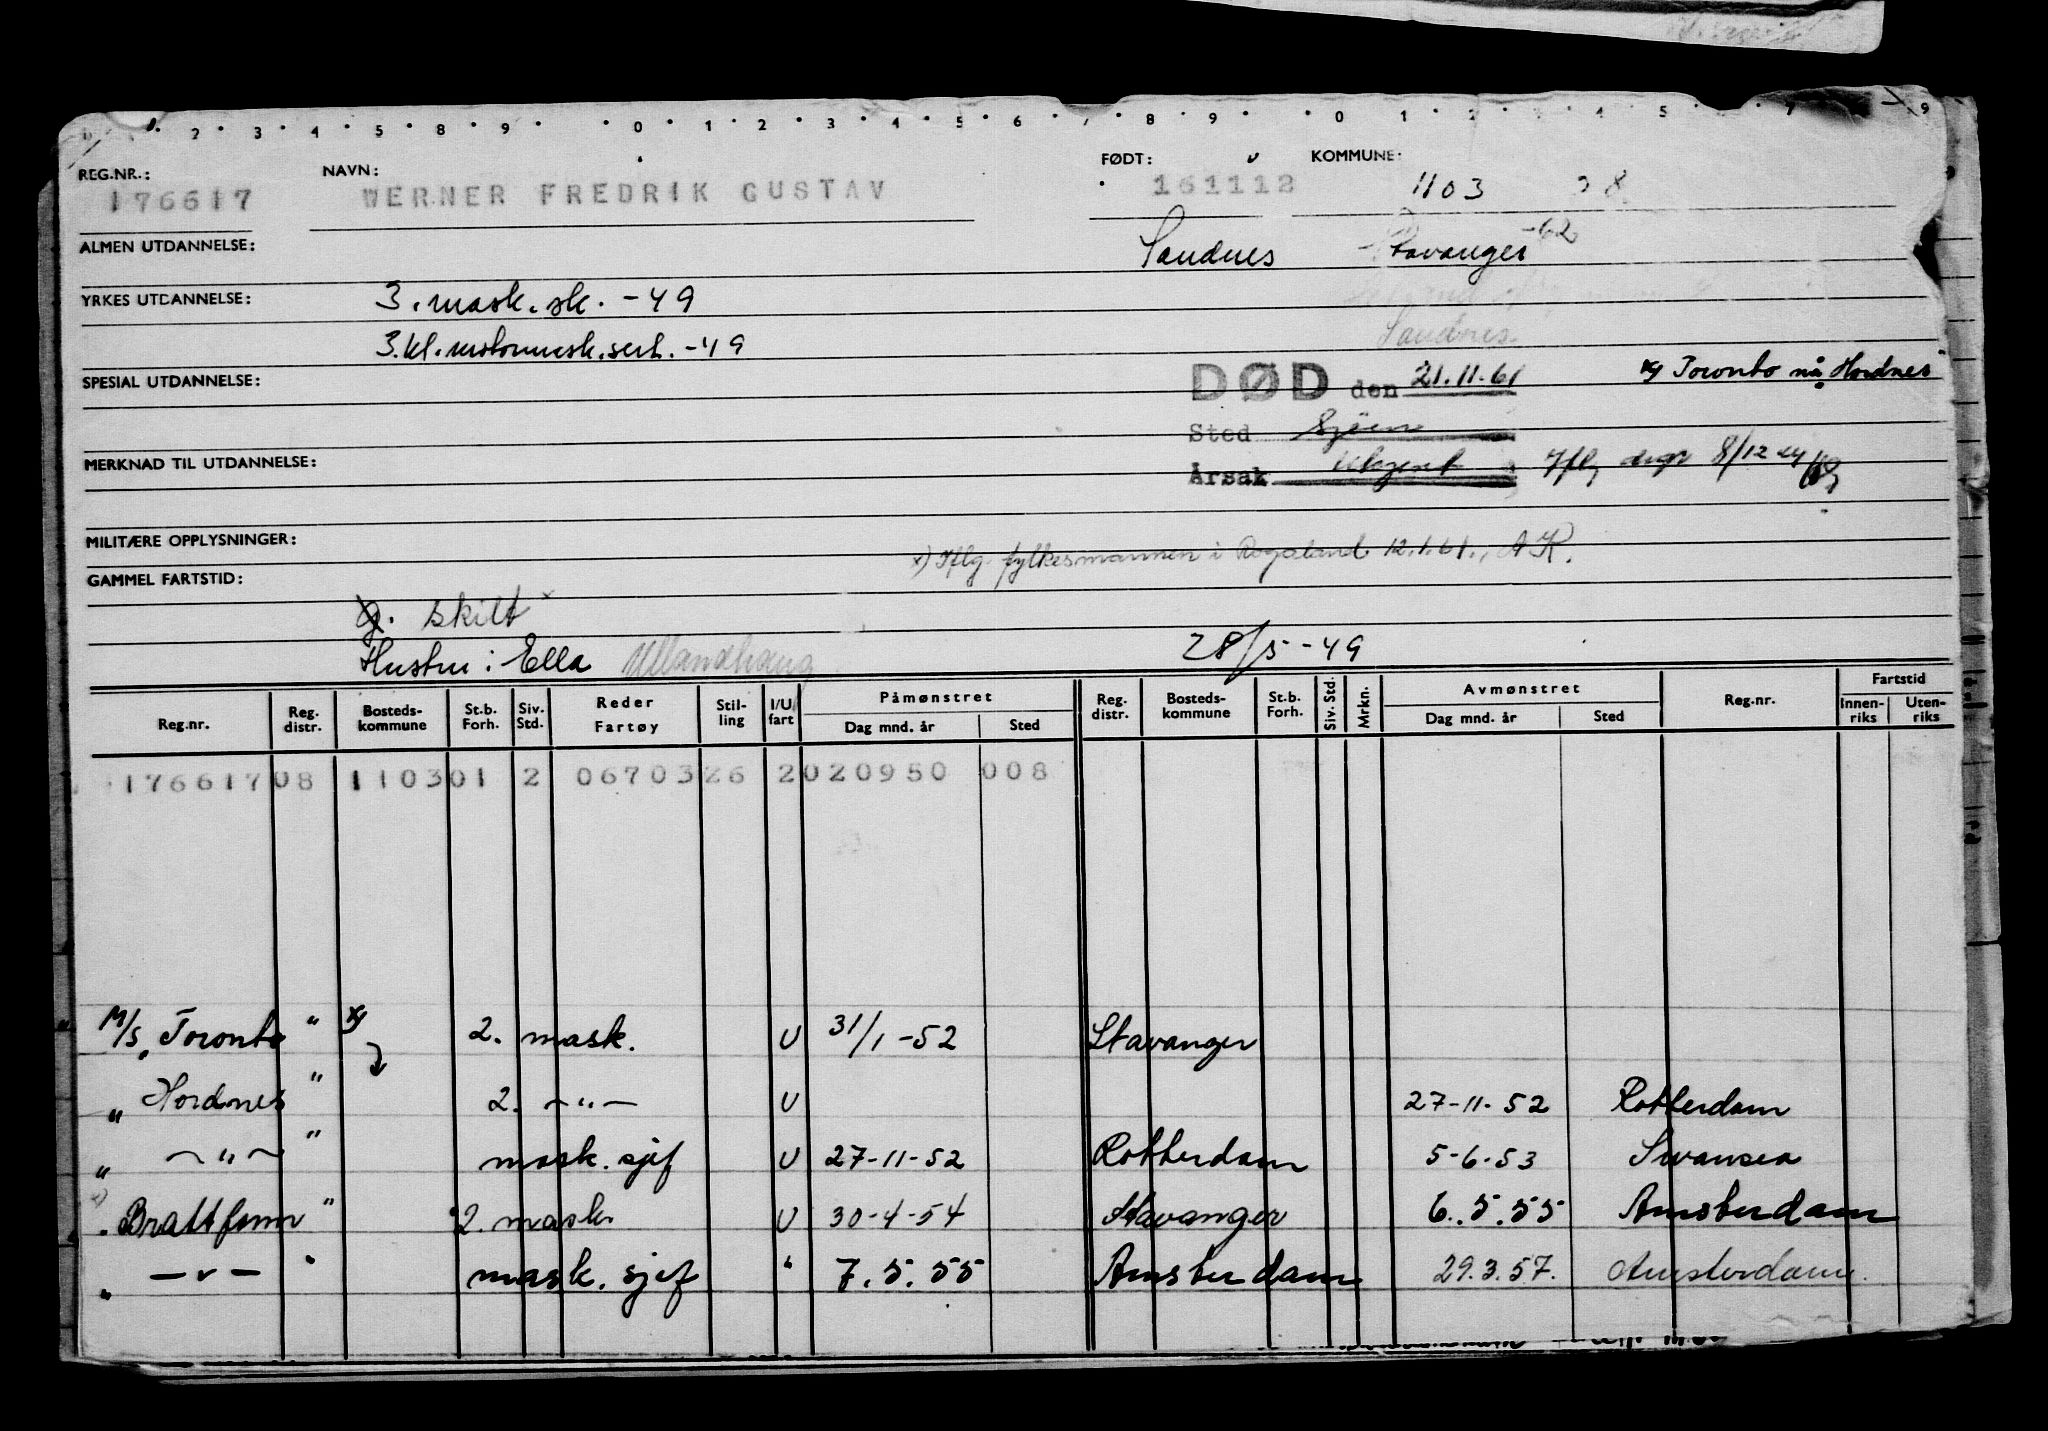 1 2 3 4 5 8 9 0 1 2 3 4 5 6 7 8 9 0 1 2 3 4 5 7 9
REG.NR.: NAVN: FØDT: KOMMUNE:
176617 WERNER FREDRIK GUSTAV 161112 1103
ALMEN UTDANNELSE: Sandnes Stavanger -62
YRKES UTDANNELSE: 3. mask. sk. -49
Sandnes
3.kl. motormask.sert. -49
SPESIAL UTDANNELSE: DØD den 21.11.61 x) Toronto nå Hordnes
Sted Sjøen
MERKNAD TIL UTDANNELSE: Årsak Iflg 8/12
MILITÆRE OPPLYSNINGER: x) Iflg. fylkesmannen i Rogaland 12.1.61., A K.
GAMMEL FARTSTID:
g. skilt x
Hustru: Ella Ullandhaug 28/5-49
Reg.nr. Reg. distr. Bosteds-kommune St.b. Forh. Siv. Std. Reder Fartøy Stil-ling I/U fart Påmønstret Dag mnd. år Sted Reg. distr. Bosteds-kommune St.b. Forh. Siv. Std. Mrkn. Avmønstret Dag mnd. år Sted Reg.nr. Fartstid Innen-riks Uten-riks
176617 08 1103 01 2 0670326 2 020950 008
M/S „Toronto" x) 2. mask. U 31/1-52 Stavanger
„ Hordnes " 2. -"- U 27-11-52 Rotterdam
„ -"- " mask. sjef U 27-11-52 Rotterdam 5-6-53 Swansea
„ Brattfonn " 2. mask. U 30-4-54 Stavanger 6.5.55 Amsterdam
„ -"- " mask. sjef " 7.5.55 Amsterdam 29.3.57. Amsterdam.